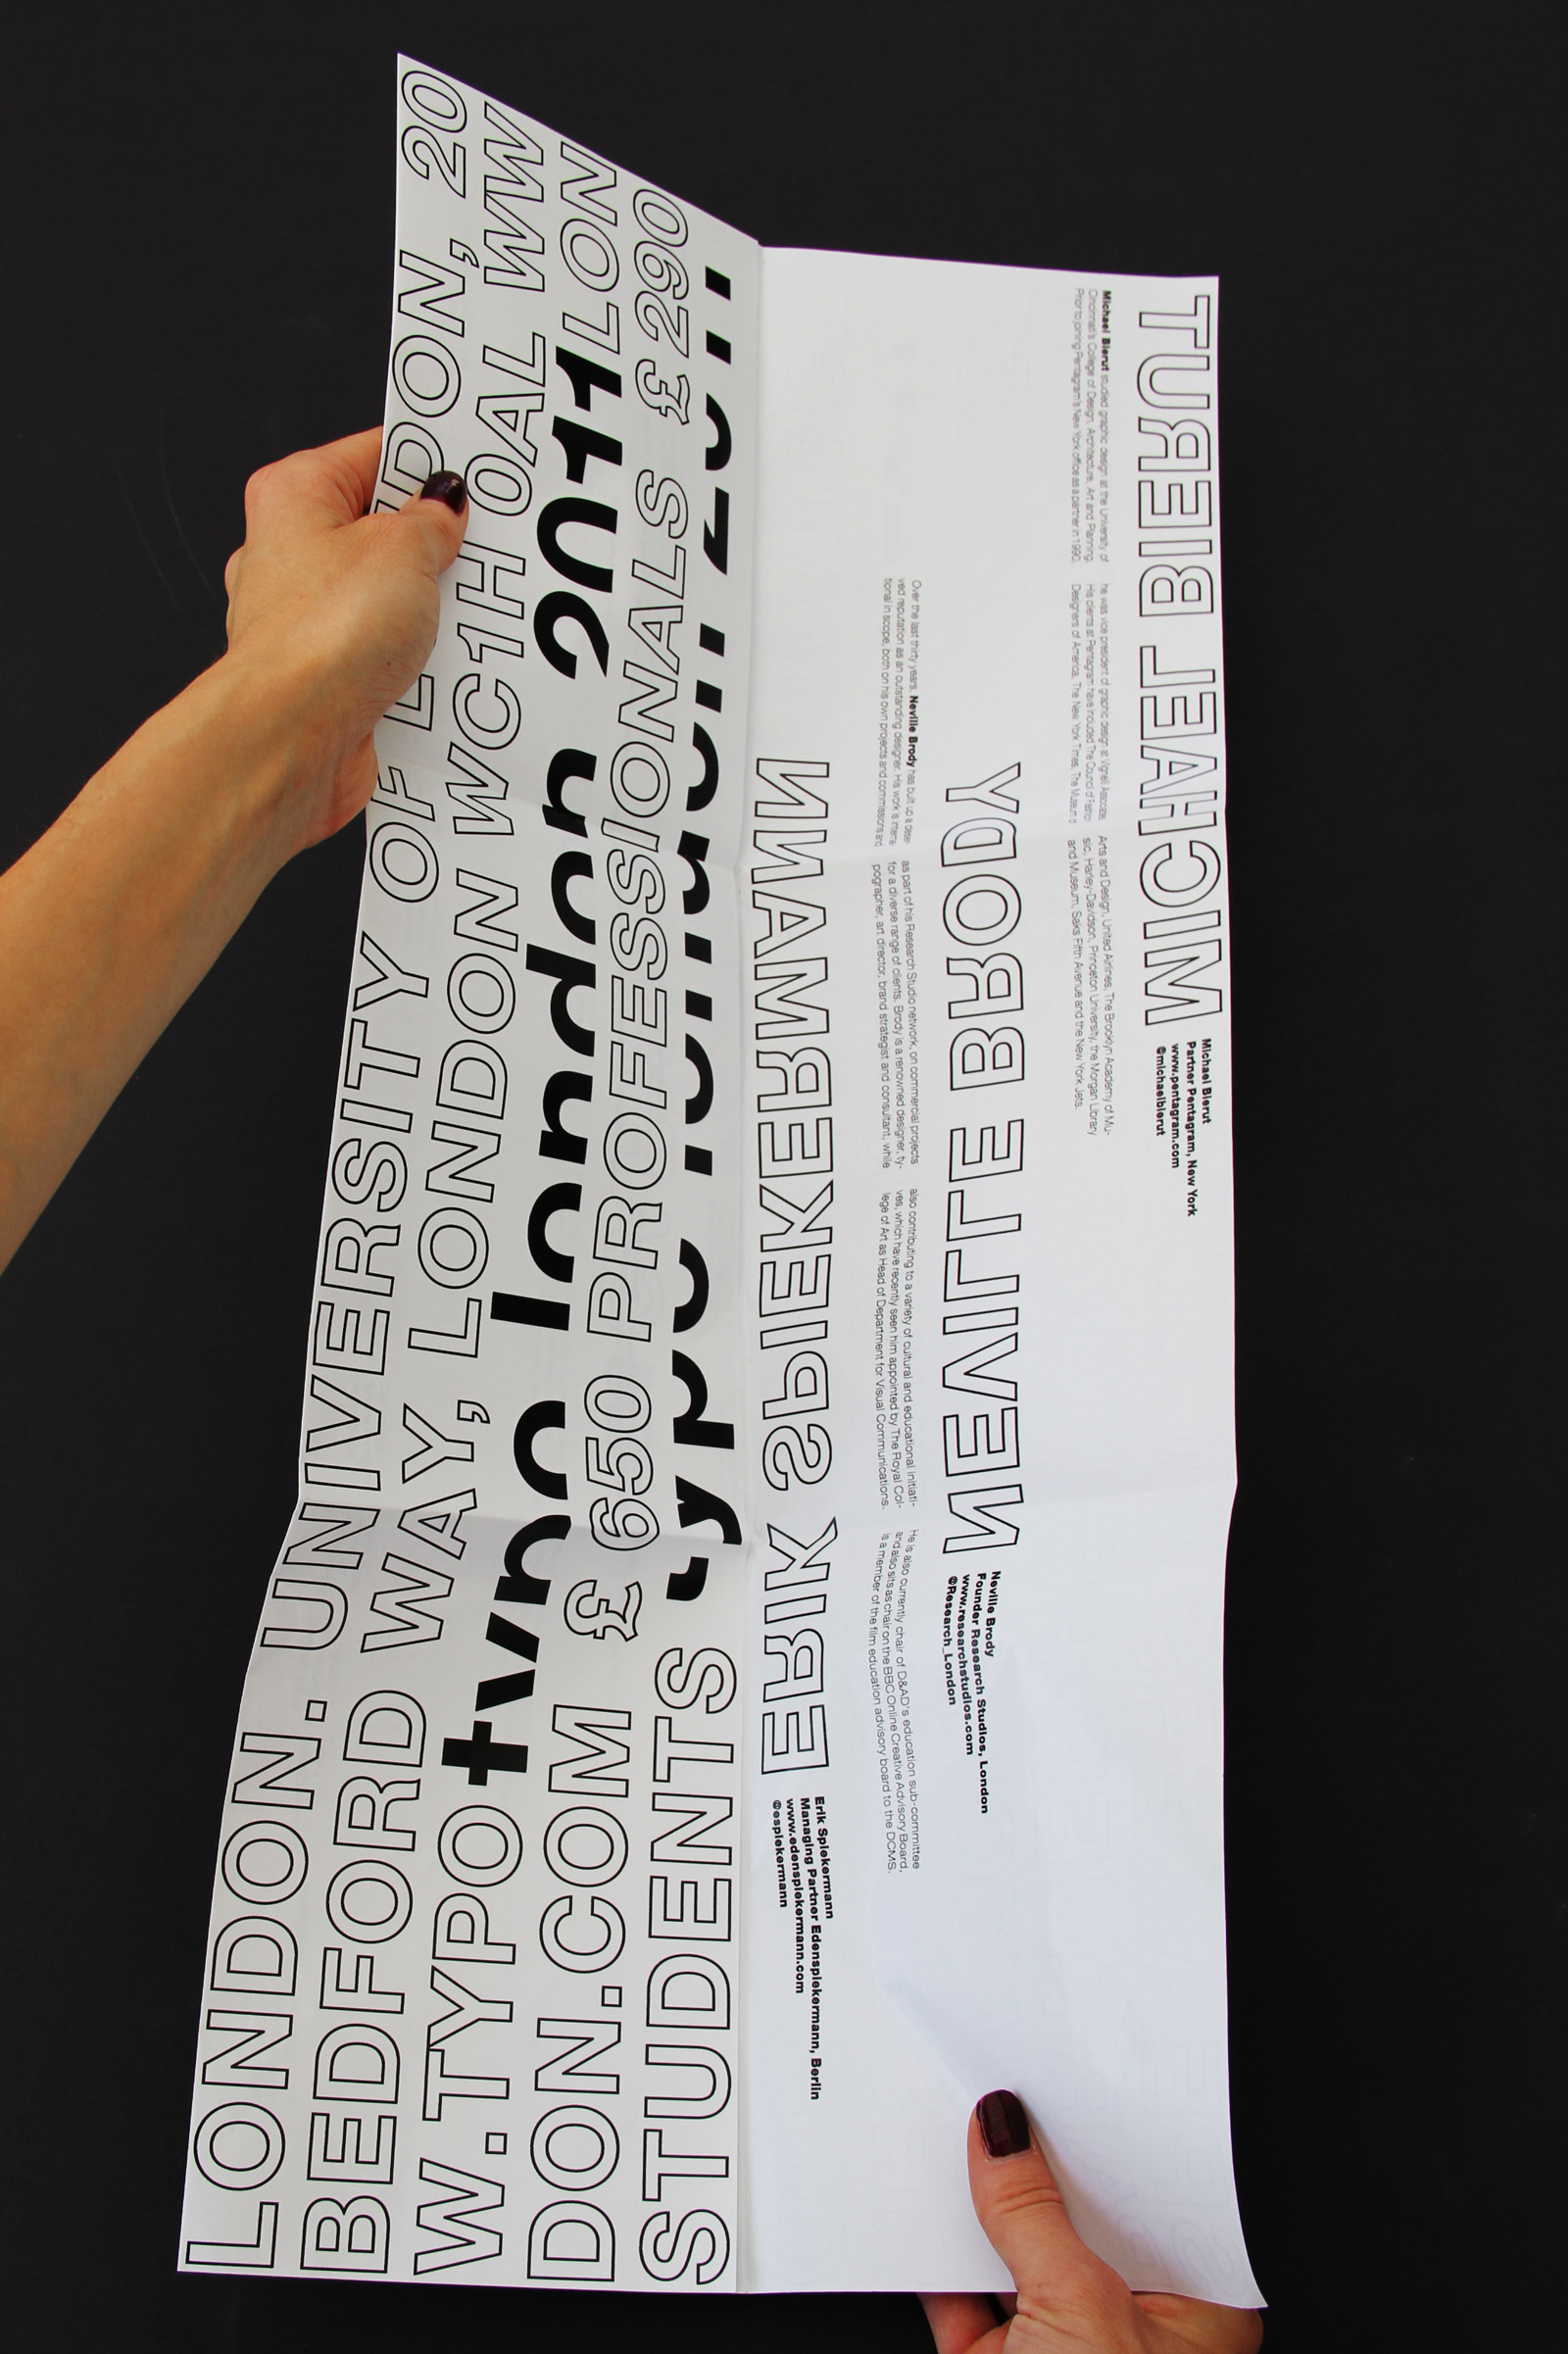 LONDON. UNIVERSITY OF LONDON, 20
BEDFORD WAY, LONDON WC1H 0AL WW
W.TYPO+typo london 2011LON
DON.COM £ 650 PROFESSIONALS £ 290
STUDENTS typo london 2011
MICHAEL BIERUT
Michael Bierut
Partner Pentagram, New York
www.pentagram.com
@michaelbierut
Michael Bierut studied graphic design at the University of
Cincinnati's College of Design, Architecture, Art and Planning.
Prior to joining Pentagram's New York office as a partner in 1990,
he was vice president of graphic design at Vignelli Associates.
His clients at Pentagram have included The Council of Fashion
Designers of America, The New York Times, The Museum of
Arts and Design, United Airlines, The Brooklyn Academy of Mu-
sic, Harley-Davidson, Princeton University, the Morgan Library
and Museum, Saks Fifth Avenue and the New York Jets.
NEVILLE BRODY
Neville Brody
Founder Research Studios, London
www.researchstudios.com
@Research_London
Over the last thirty years, Neville Brody has built up a deser-
ved reputation as an outstanding designer. His work is interna-
tional in scope, both on his own projects and commissions and
as part of his Research Studio network, on commercial projects
for a diverse range of clients. Brody is a renowned designer, ty-
pographer, art director, brand strategist and consultant, while
also contributing to a variety of cultural and educational initiati-
ves, which have recently seen him appointed by The Royal Col-
lege of Art as Head of Department for Visual Communications.
He is also currently chair of D&AD's education sub-committee
and also sits as chair on the BBC Online Creative Advisory Board,
is a member of the film education advisory board to the DCMS.
ERIK SPIEKERMANN
Erik Spiekermann
Managing Partner Edenspiekermann, Berlin
www.edenspiekermann.com
@espiekermann